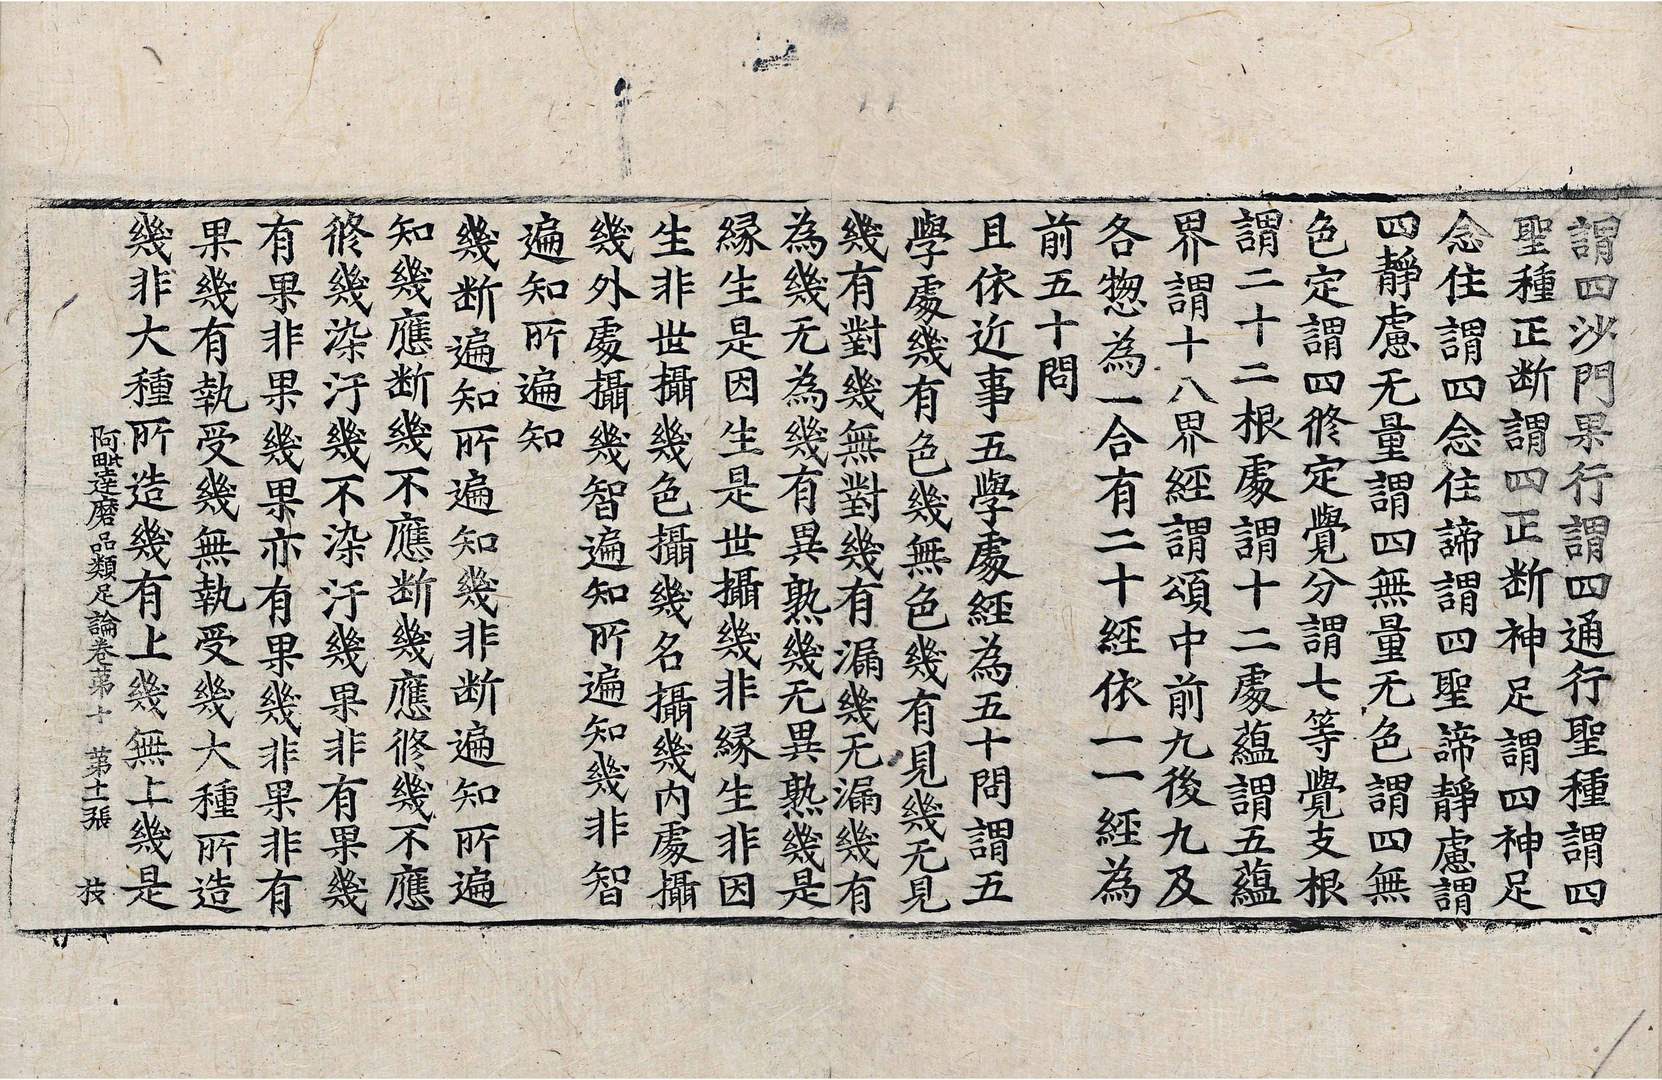 謂四沙門果行謂四通行聖種謂四
聖種正断謂四正断神足謂四神足
念住謂四念住諦謂四聖諦靜慮謂
四靜慮无量謂四無量无色謂四無
色定謂四修定覺分謂七等覺支根
謂二十二根處謂十二處蘊謂五蘊
界謂十八界經謂頌中前九後九及
各惣為一合有二十經依一一經為
前五十問
且依近事五學處經為五十問謂五
學處幾有色幾無色幾有見幾无見
幾有對幾無對幾有漏幾无漏幾有
為幾无為幾有異熟幾无異熟幾是
緣生是因生是世攝幾非緣生非因
生非世攝幾色攝幾名攝幾內處攝
幾外處攝幾智遍知所遍知幾非智
遍知所遍知
幾断遍知所遍知幾非断遍知所遍
知幾應断幾不應断幾應修幾不應
修幾染汙幾不染汙幾果非有果幾
有果非果幾果亦有果幾非果非有
果幾有執受幾無執受幾大種所造
幾非大種所造幾有上幾無上幾是
阿毗達磨品類足論卷苐十 苐十一張 技